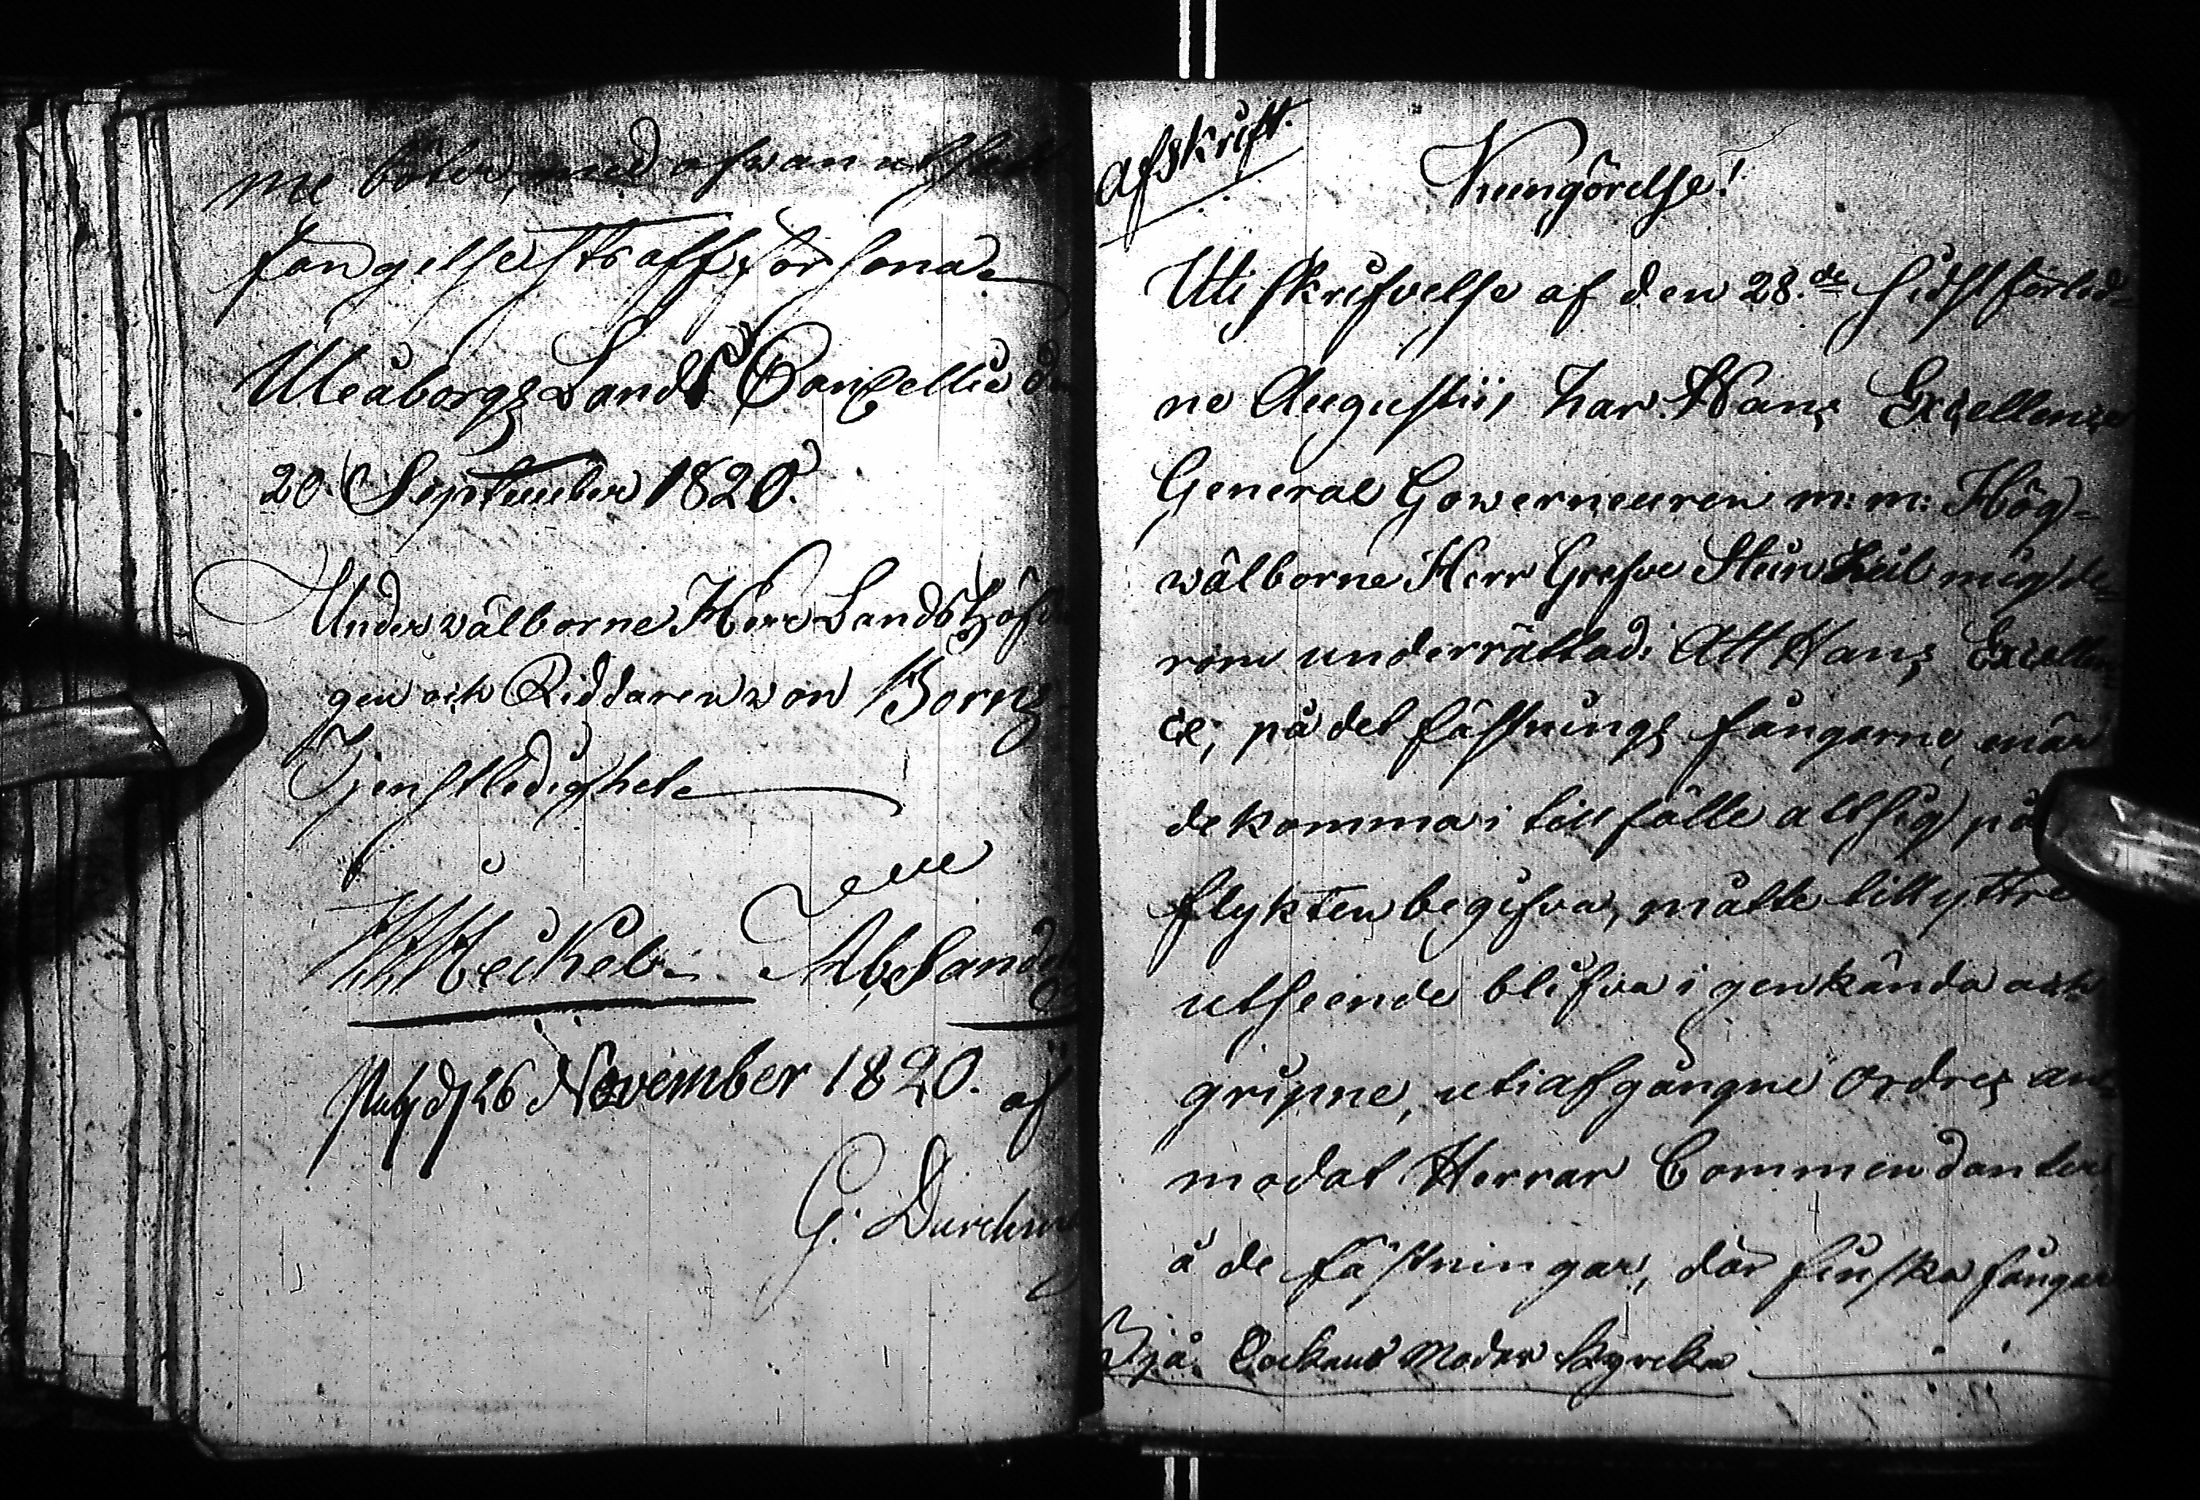 me böter, med ofvan utsatt
fängelse straff försona.
Uleåborgs Lands Cancellie den
20. September 1820.
Under wälborne Herr Landshöfdin
gen och Riddaren von Borns
Tjenstledighet.
Ab. Sand
Publ. d. 26 November 1820. af
G. Durchman
Afskrift.
Kungörelse!
Uti skrifvelse af den 28.de sidstförled-
ne Augustii, har Hans Excellence
General Gowerneuren m: m: Hög-
wälborne Herr Grefve Steinheil mig de-
rom underrättad: Att Hans Excellen-
ce, på det fästnings fångarne, när
de komma i tillfälle att sig på
flykten begifva, måtte till yttre
utseende blifva igenkända och
gripne, uti afgångne Ordres an-
modat Herrar Commendanter
å de fästningar, där finska fångar
moder kyrcka